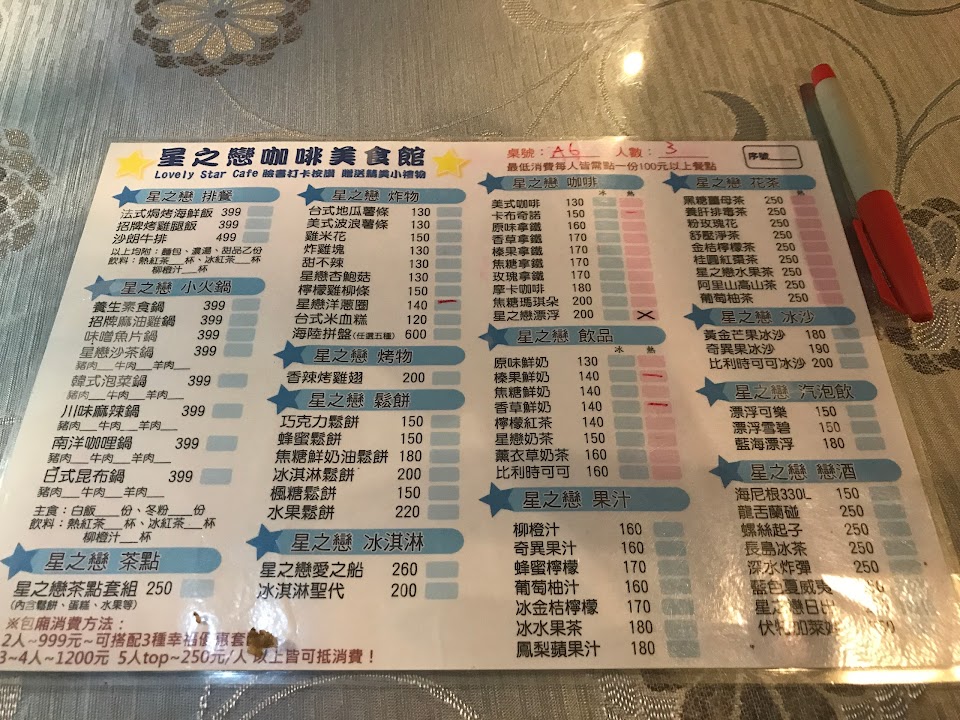 星之戀咖啡美食館
Lovely Star Cafe 臉書打卡按讚 贈送精美小禮物
桌號：A6 人數：3
最低消費每人皆需點一份100元以上餐點
序號
星之戀 排餐
法式焗烤海鮮飯 399
招牌烤雞腿飯 399
沙朗牛排 499
以上均附：麵包、濃湯、甜品乙份
飲料：熱紅茶__杯、冰紅茶__杯
柳橙汁__杯
星之戀 小火鍋
養生素食鍋 399
招牌麻油雞鍋 399
味噌魚片鍋 399
星戀沙茶鍋 399
豬肉__牛肉__羊肉__
韓式泡菜鍋 399
豬肉__牛肉__羊肉__
川味麻辣鍋 399
豬肉__牛肉__羊肉__
南洋咖哩鍋 399
豬肉__牛肉__羊肉__
日式昆布鍋 399
豬肉__牛肉__羊肉__
主食：白飯__份、冬粉__份
飲料：熱紅茶__杯、冰紅茶__杯
柳橙汁__杯
星之戀 茶點
星之戀茶點套組 250
(內含鬆餅、蛋糕、水果等)
※包廂消費方法：
2人~999元~可搭配3種幸福優惠套
3~4人~1200元 5人top~250元/人 以上皆可抵消費！
星之戀 炸物
台式地瓜薯條 130
美式波浪薯條 130
雞米花 150
炸雞塊 130
甜不辣 130
星戀杏鮑菇 130
檸檬雞柳條 150
星戀洋蔥圈 140
台式米血糕 120
海陸拼盤(任選五種) 600
星之戀 烤物
香辣烤雞翅 200
星之戀 鬆餅
巧克力鬆餅 150
蜂蜜鬆餅 150
焦糖鮮奶油鬆餅 180
冰淇淋鬆餅 200
楓糖鬆餅 150
水果鬆餅 220
星之戀 冰淇淋
星之戀愛之船 260
冰淇淋聖代 200
星之戀 咖啡
冰 熱
美式咖啡 130
卡布奇諾 150
原味拿鐵 160
香草拿鐵 170
榛果拿鐵 170
焦糖拿鐵 170
玫瑰拿鐵 170
摩卡咖啡 180
焦糖瑪琪朵 200
星之戀漂浮 200
星之戀 飲品
冰 熱
原味鮮奶 130
榛果鮮奶 140
焦糖鮮奶 140
香草鮮奶 140
檸檬紅茶 140
星戀奶茶 150
薰衣草奶茶 160
比利時可可 160
星之戀 果汁
柳橙汁 160
奇異果汁 160
蜂蜜檸檬 170
葡萄柚汁 160
冰金桔檸檬 170
冰水果茶 180
鳳梨蘋果汁 180
星之戀 花茶
黑糖薑母茶 250
養肝排毒茶 250
粉玫瑰花 250
舒壓淨茶 250
金桔檸檬茶 250
桂圓紅棗茶 250
星之戀水果茶 250
阿里山高山茶 250
葡萄柚茶 250
星之戀 冰沙
黃金芒果冰沙 180
奇異果冰沙 190
比利時可可冰沙 200
星之戀 汽泡飲
漂浮可樂 150
漂浮雪碧 150
藍海漂浮 180
星之戀 戀酒
海尼根330L 150
龍舌蘭碰 250
螺絲起子 250
長島冰茶 250
深水炸彈 250
藍色夏威夷
星之戀日出
伏特加萊姆